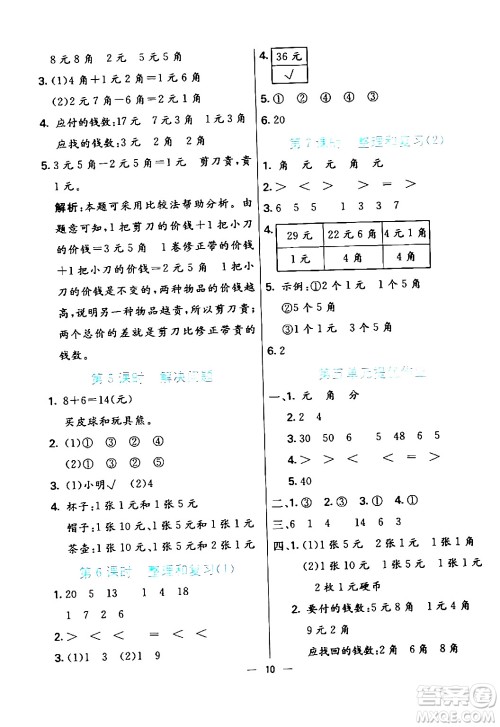 8 元 8 角　2 元　5 元 5 角
3. (1)4 角＋1 元 2 角＝1 元 6 角
(2)2 元 7 角－6 角＝2 元 1 角
4. 应付的钱数:5 元　9 元 5 角
应找的钱数:3 元　2 角　8 角
5. 3 元 5 角＞2 元 5 角　剪刀贵,贵
1 元。
解析:本题可采用比较法帮助分析。由
题意可知,1 把剪刀的价钱＋1 把小刀
的价钱＞1 卷修正带的价钱
＋1 把小刀的价钱,其中 1 把小
刀的价钱是不变的,两种物品的价钱越
高,说明另一种物品越贵,所以剪刀贵,
两个总价的差就是剪刀比修正带贵的
钱数。
第 5 课时　解决问题
1. 8＋6＝14(元)
买皮球和玩具熊。
2. (1)①　③　②　④
(2)①　③
3. (1)小明√　(2)4
4. 杯子:1 张 1 元和 1 张 5 元
帽子:1 张 10 元、1 张 5 元和 1 张 1 元
茶壶:1 张 10 元、1 张 5 元和 2 张 1 元
第 6 课时　整理和复习(1)
1. 20　5　13　　1　14　18
1　7　2　6
2. ＞　＜　＞　＜　＝　＜
3. (1)94　9　(2)8　2　(3)2　1
4.
36 元
√
5. ①　②　④　④　③
6. 20
第 7 课时　整理和复习(2)
1. 角　元　元　角　元
2. ＞　＜　＞　＜　＞　＜
3. 6　5　5　　13　7　2
4.
29 元　22 元 6 角　4 元 1 角
1 元　4 角　4 角
5. 示例:①1 个　②3 个　③1 个
②5 个
③1 个　①1 个　②1 个
6. 2
第五单元提优作业
一、1. 元　角　分
2. 2　4
3. 30　60　94　5　48　6　5
4. ＞　＜　＞　＞　＜　＜
5. 40
二、1. ③　2. ①　3. ②　4. ①　5. ③
三、6　1　4　3　5　2
四、1. (1)1 张 5 元　2 张 1 元　1 张 5 角
(2)1 张 5 元　1 张 1 元
2 枚 1 元硬币
2. 要付的钱数:5 元 8 角　8 元 4 角
9 元 2 角
应找回的钱数:4 元 2 角　1 元 6 角
10